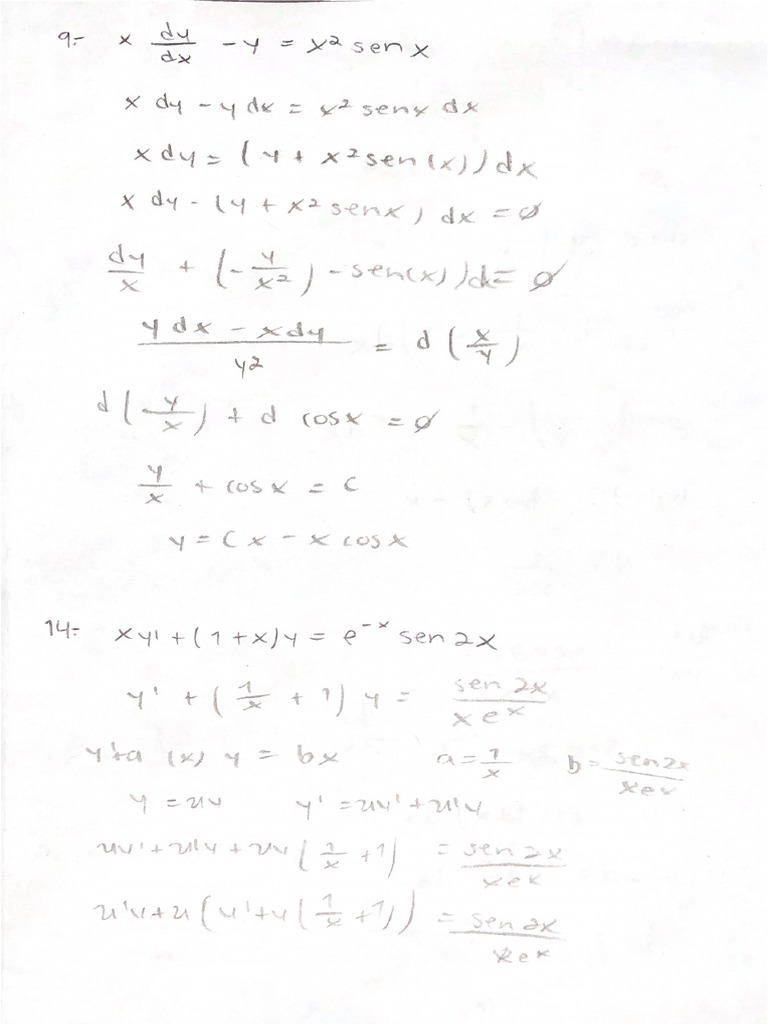 9.- x dy/dx - y = x² sen x
x dy - y dx = x² senx dx
x dy = (y + x² sen(x)) dx
x dy - (y + x² senx) dx = ∅
dy/x + (-y/x²) - sen(x)) d = ∅
y dx - x dy / y² = d (x/y)
d (y/x) + d cosx = ∅
y/x + cos x = C
y = Cx - x cosx
14.- xy' + (1+x)y = e^-x sen 2x
y' + (1/x + 1) y = sen 2x / x e^x
y'+a (x) y = bx a = 1/x b = sen2x / xe^x
y = uv y' = uv' + u'v
uv' + u'v + uv (1/x + 1) = sen 2x / xe^x
u'v + u (v' + v (1/x + 1)) = sen 2x / xe^x